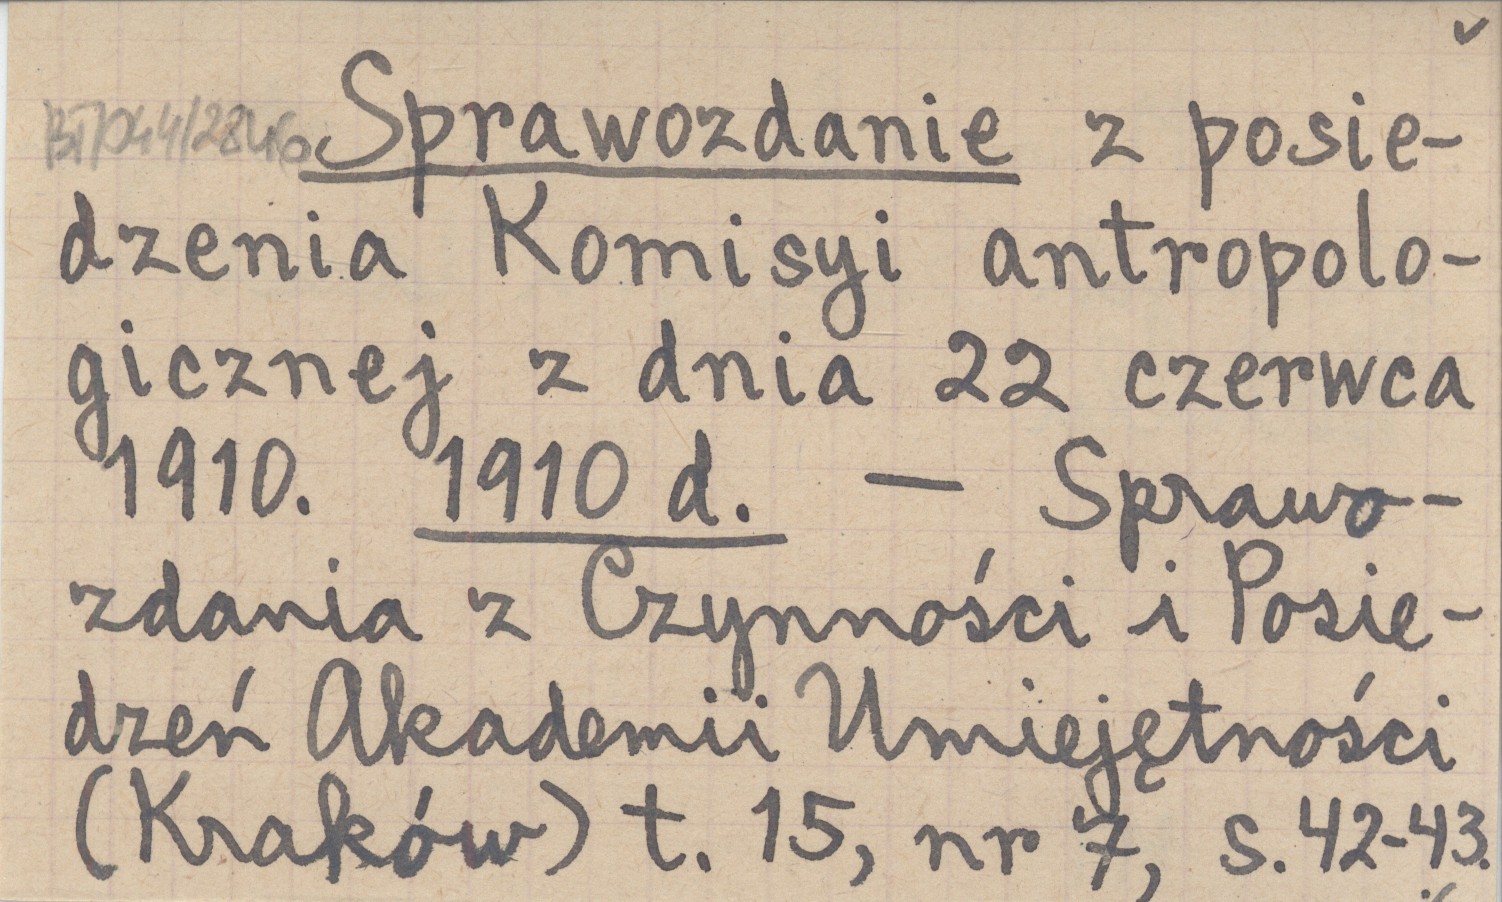 Sprawozdanie z posie-
dzenia Komisyi antropolo-
gicznej z dnia 22 czerwca
1910. 1910 d. — Sprawo-
zdania z Czynności i Posie-
dzeń Akademii Umiejętności
(Kraków) t. 15, nr 7, s. 42-43.